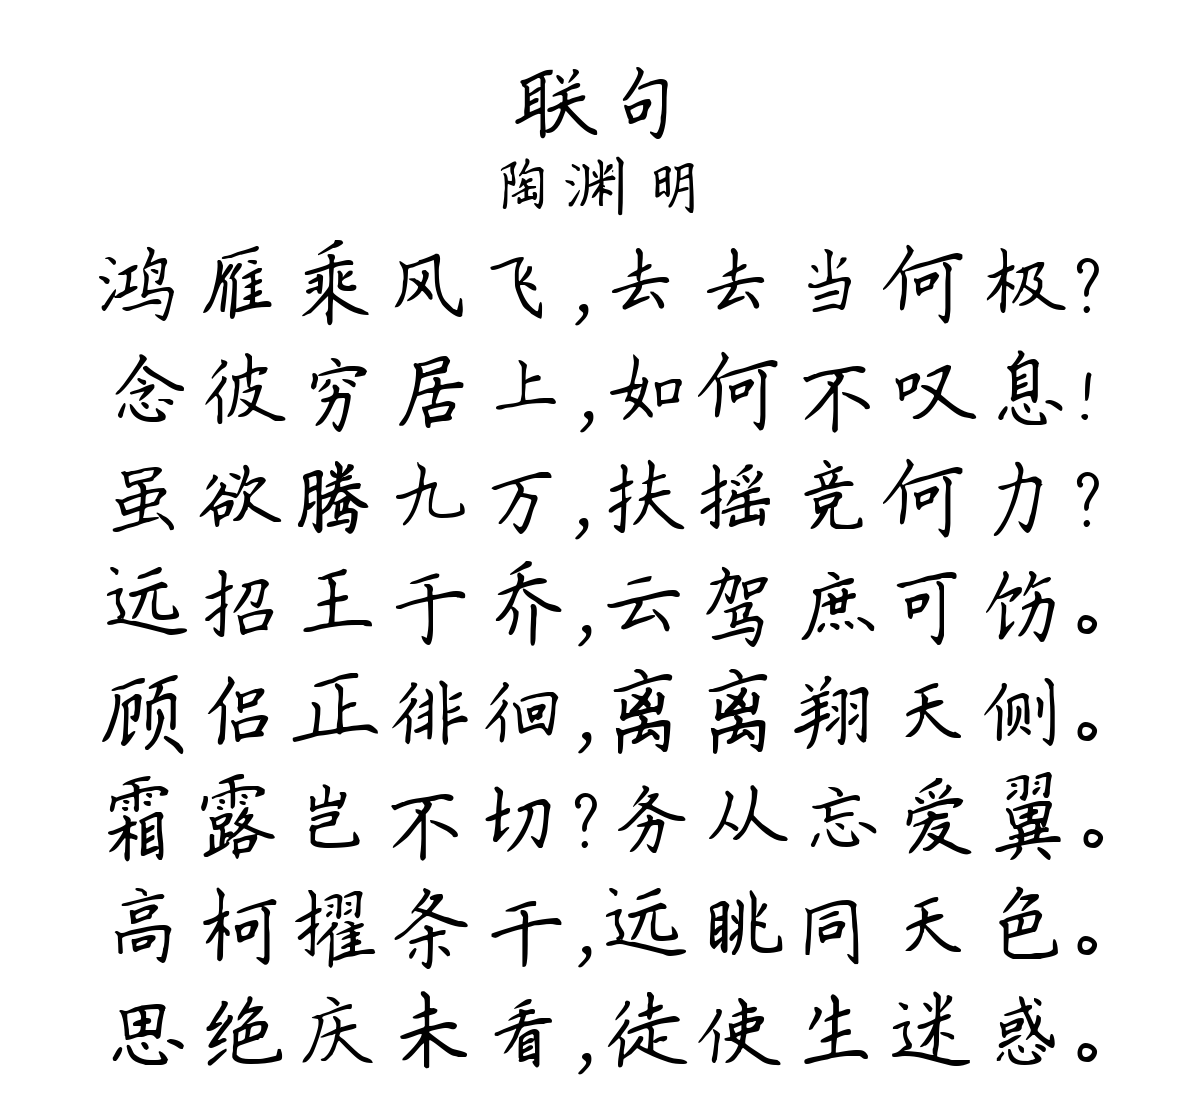 联句
陶渊明
鸿雁乘风飞,去去当何极?
念彼穷居上,如何不叹息!
虽欲腾九万,扶摇竞何力?
远招王于乔,云驾庶可饬。
顾侣正徘徊,离离翔天侧。
霜露岂不切?务从忘爱翼。
高柯擢条干,远眺同天色。
思绝庆未看,徒使生迷惑。